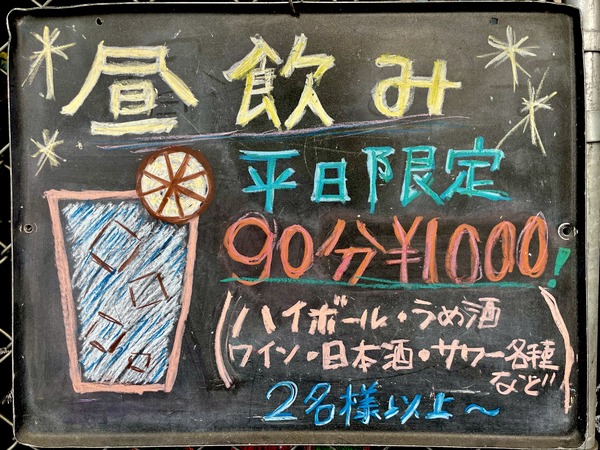 昼飲み
平日限定
90分¥1000!
(ハイボール・うめ酒
ワイン・日本酒・サワー各種
など)
2名様以上〜